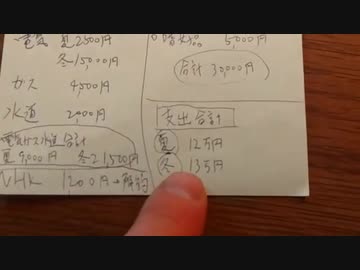 電気 夏2500円
冬15000円
ガス 4,500円
水道 2,000円
電気ガス水道 合計
夏9,000円 冬21,500円
NHK 1200円→解約
5,000円
合計 30,000円
支出合計
夏 12万円
冬 13万円